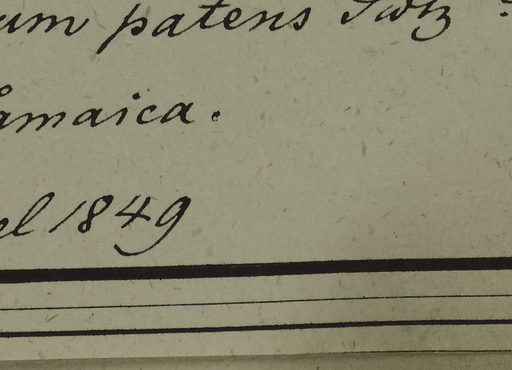 um patens Swtz
amaica.
el 1849